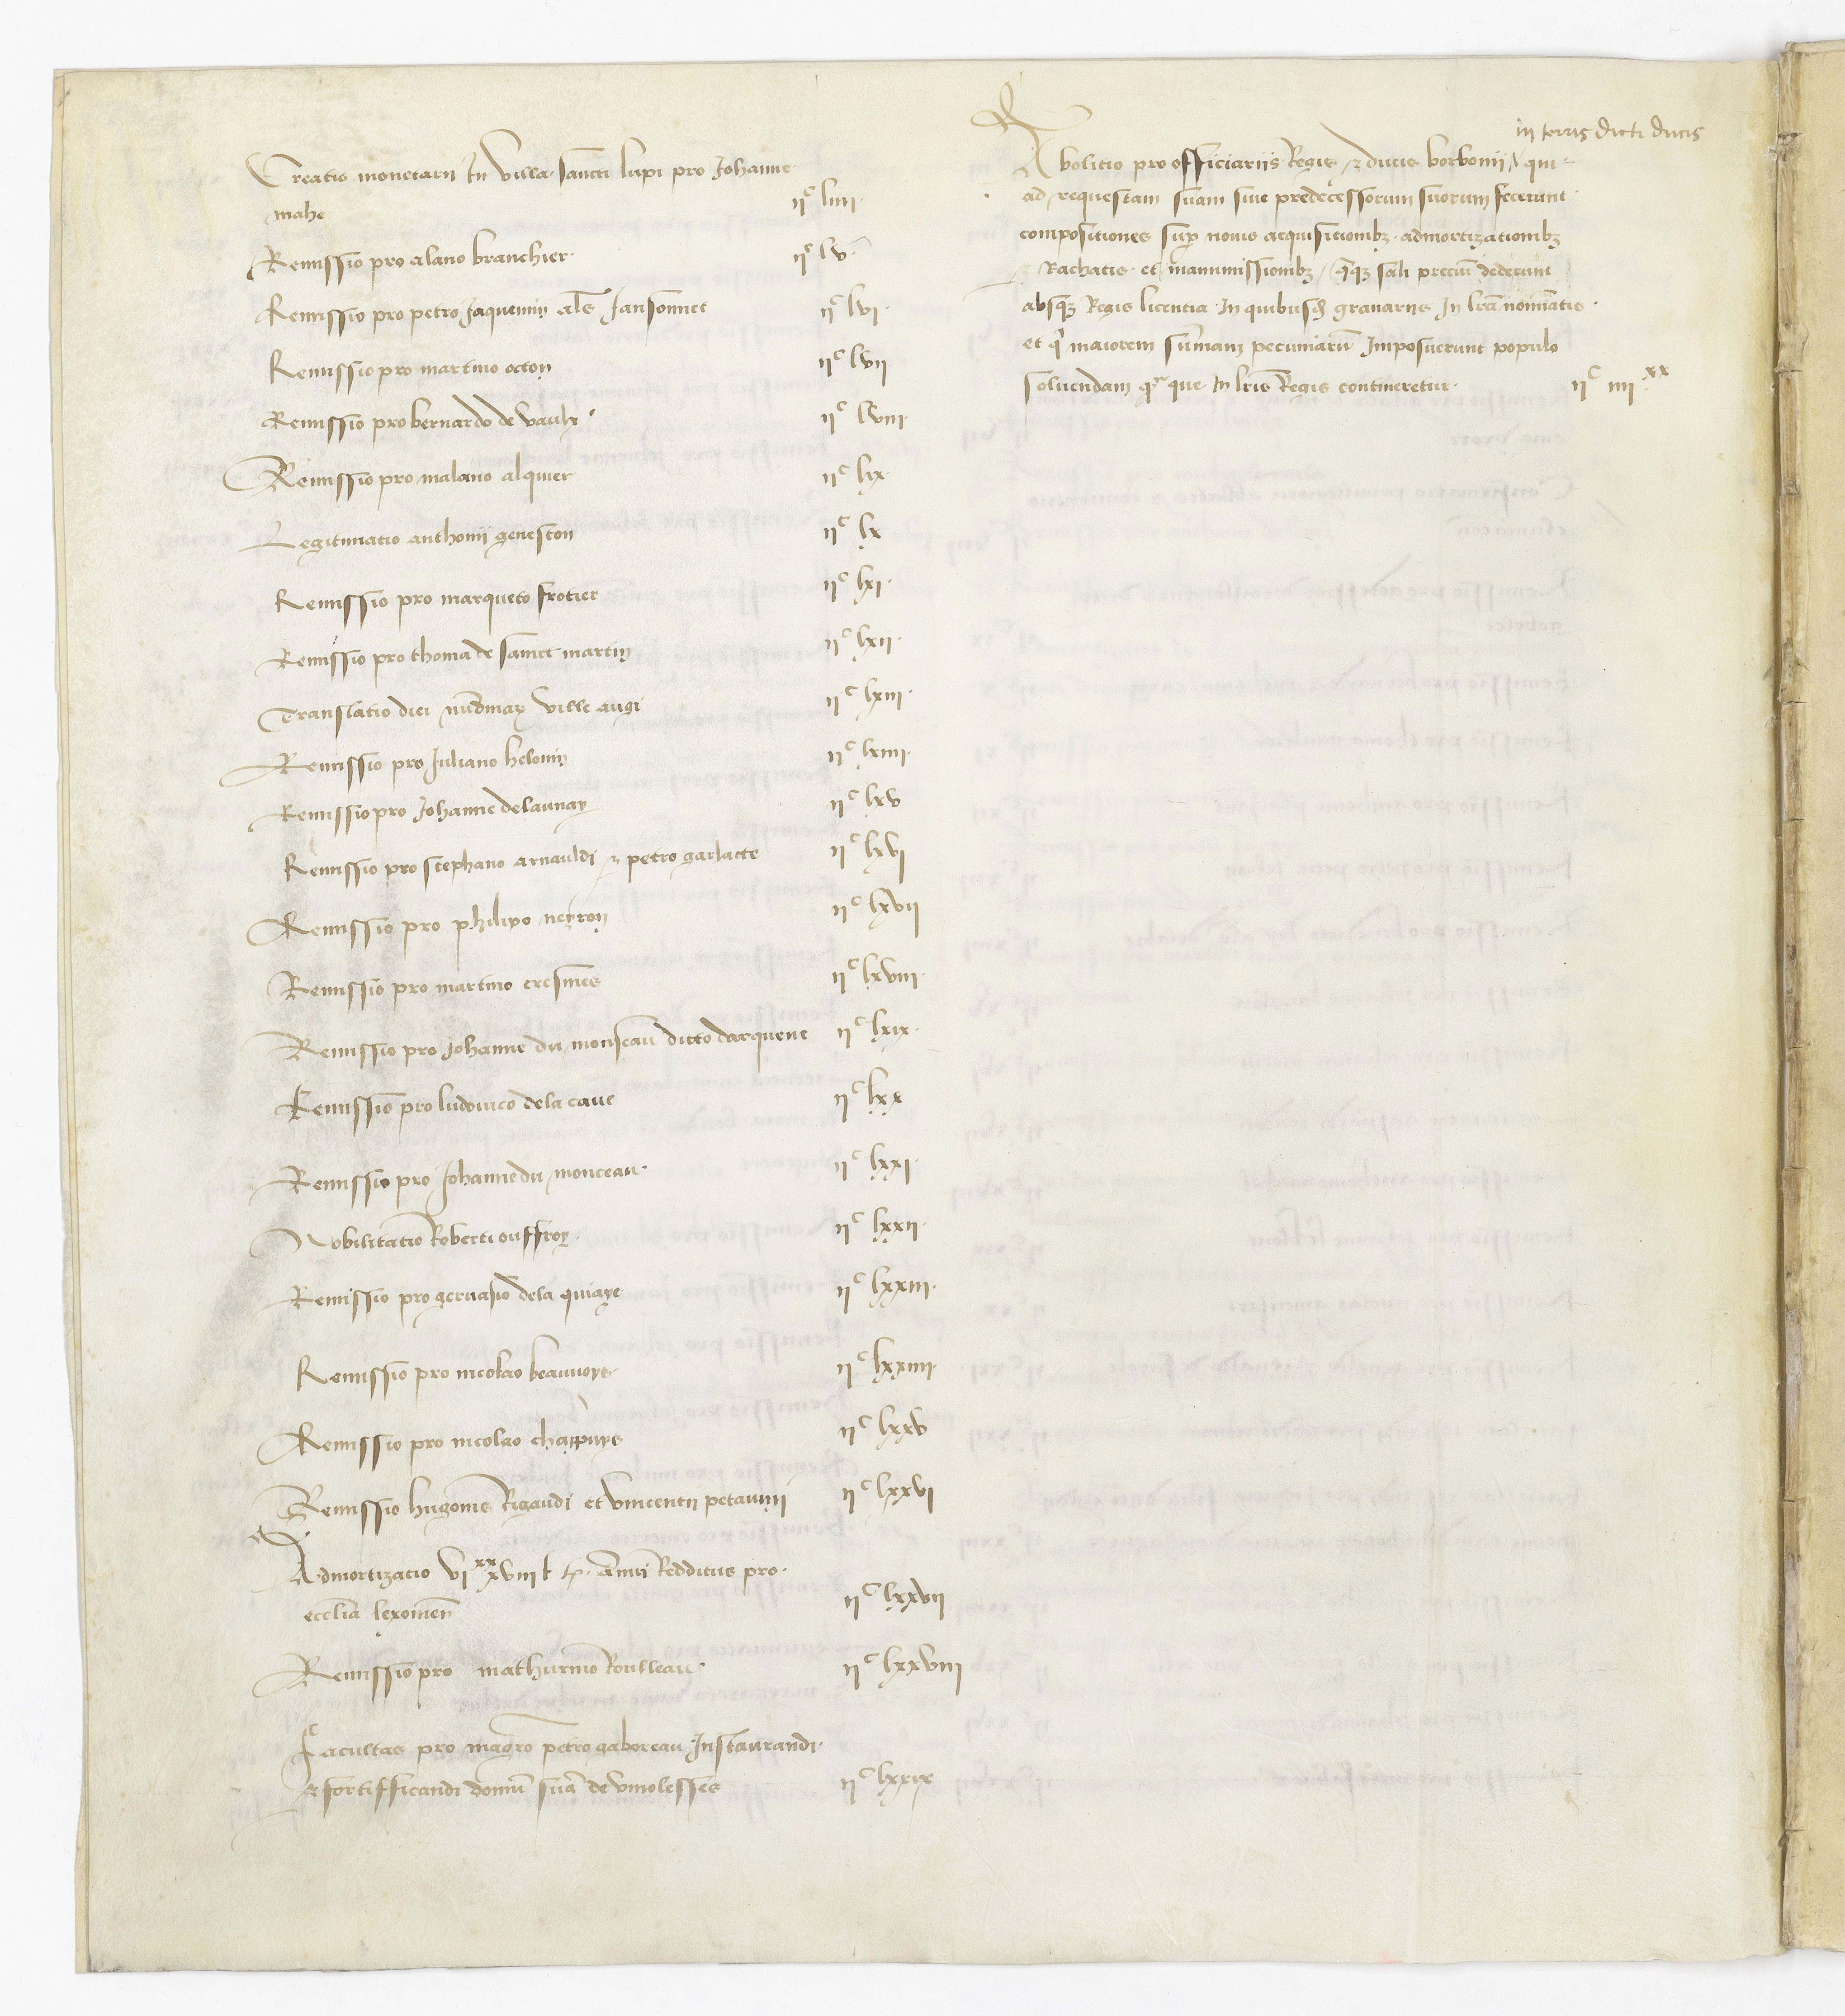 Creatio monetarii In villa sancti lupi pro Johanne
mahe IIc LIIII
Remissio pro alano branchier IIc LV
Remissio pro petro Jaquemin als Jansonnet IIc LVI
Remissio pro martino octon IIc LVII
Remissio pro bernardo de vaulx IIc LVIII
Remissio pro malano alquier IIc LIX
Legitimatio anthonii geneston IIc LX
Remissio pro marqueto frotier IIc LXI
Remissio pro thoma de sainct martin IIc LXII
Translatio diei nundinar ville augi IIc LXIII
Remissio pro Juliano helouin IIc LXIIII
Remissio pro Johanne delaunay IIc LXV
Remissio pro stephano arnauldi & petro garlacte IIc LXVI
Remissio pro philipo neyron IIc LXVII
Remissio pro martino cresmes IIc LXVIII
Remissio pro Johanne du monseau dicto darquene IIc LXIX
Remissio pro ludovico dela caue IIc LXX
Remissio pro Johanne du monceau IIc LXXI
Nobilitatio Roberti ouffroy IIc LXXII
Remissio pro gervasio dela quiaye IIc LXXIII
Remissio pro nicolao beauvoys IIc LXXIIII
Remissio pro nicolao chappuys IIc LXXV
Remissio hugonis Rigaudi et vincentii petavini IIc LXXVI
Admortizacio VIxx XVIII l t. annui Redditus pro
ecclia lexovien IIc LXXVII
Remissio pro mathurino Roulleau IIc LXXVIII
Facultas pro magro petro gaboreau Instaurandi
& fortifficandi domu sua de vmolesses IIc LXXIX
in terris dicti ducis
Abolitio pro officiariis Regis & ducis borbonii qui
ad requestam suam sive predecessorum suorum fecerunt
compositiones sup novis acquisitionibz admortizationibz
& Rachatis et manumissionibz qz sali preciu dederunt
absqz Regis licentia In quibusd granariis In lra nominatis
et q maiorem summam pecuniaru Imposuerunt populo
solvendam q que In lris Regis contineretur IIc IIIIxx